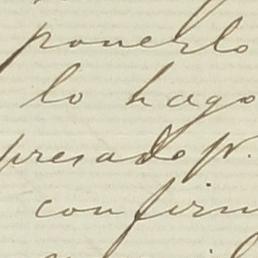 ponerlo
lo hago
presado p.
confirm